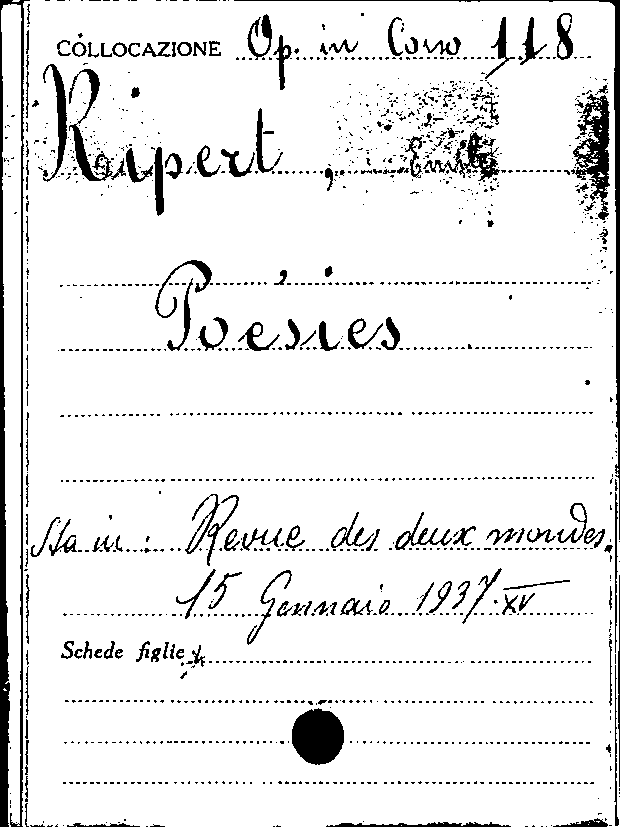 COLLOCAZIONE Op. in Corso 118
Ripert, Emile
Poésies
Sta in: Revue des deux mondes.
15 Gennaio 1937.XV
Schede figlie